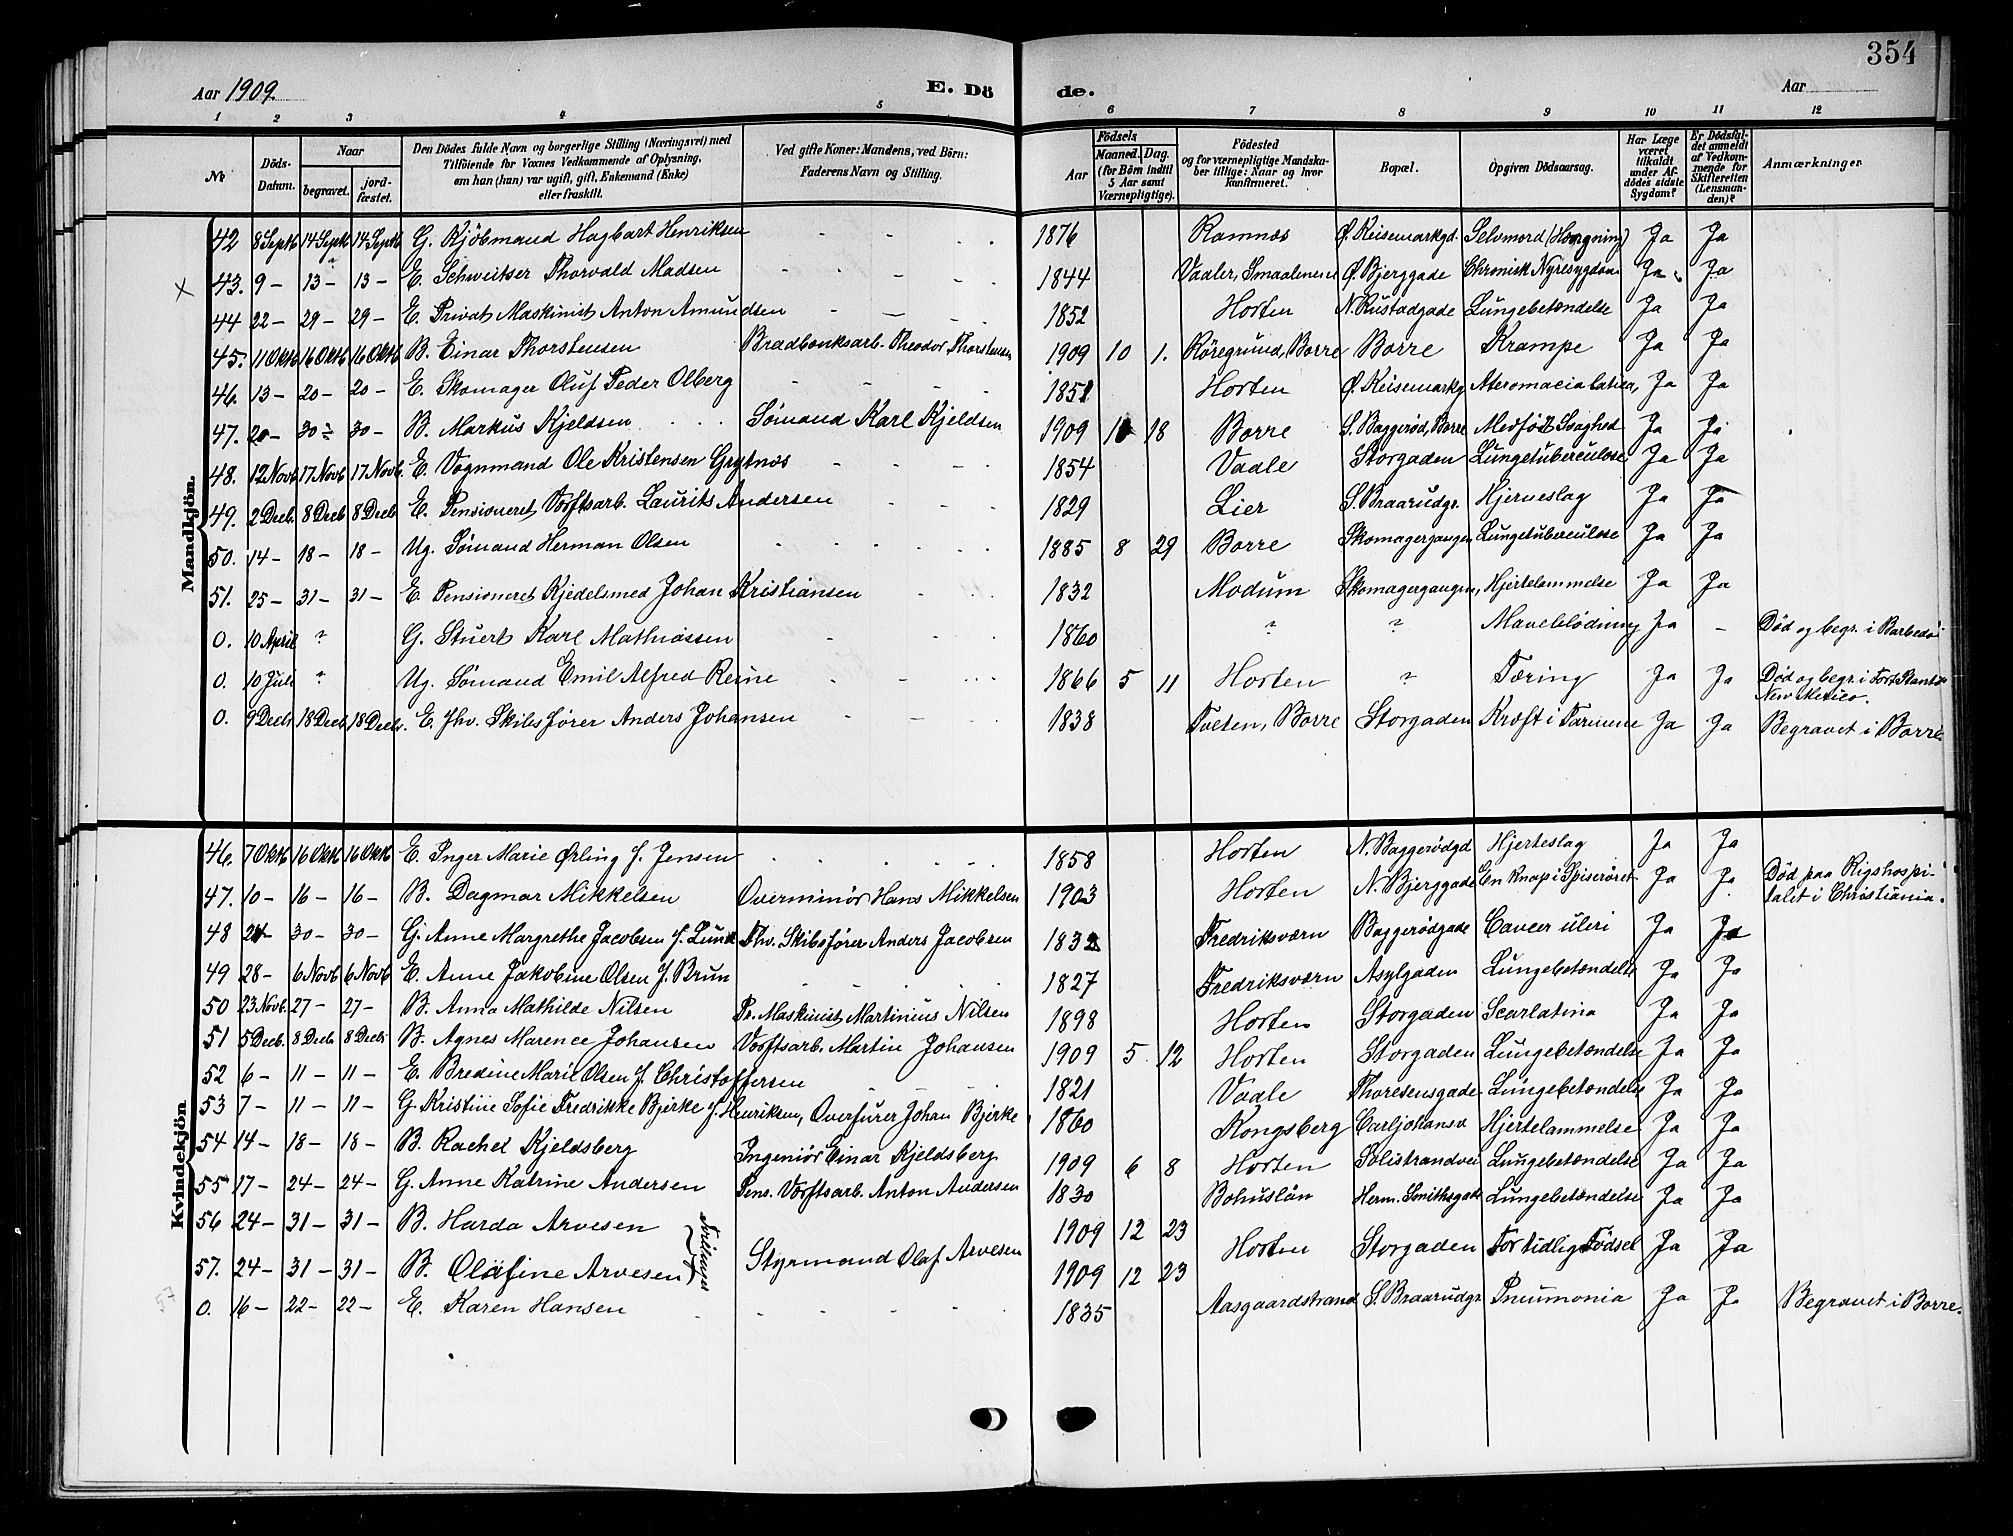 354
Aar 1909. E. Dö de. Aar
1 2 3 4 5 6 7 8 9 10 11 12
№ Döds-Datum. Naar begravet. jordfæstet. Den Dödes fulde Navn og borgerlige Stilling (Næringsvei) med Tilföiende for Voxnes Vedkommende af Oplysning, om han (hun) var ugift, gift, Enkemand (Enke) eller fraskilt. Ved gifte Koner: Mandens, ved Börn: Faderens Navn og Stilling. Födsels Aar Maaned. Dag. (for Börn indtil 5 Aar samt Værnepligtige). Födested og for værnepligtige Mandskaber tillige: Naar og hvor konfirmeret. Bopæl. Opgiven Dödsaarsag. Har Læge været tilkaldt under Afdödes sidste Sygdom? Er Dödsfaldet anmeldt af Vedkommende for Skifteretten (Lensmanden)? Anmærkninger
Mandkjön.
42 8 Septb 14 Septb 14 Septb G. Kjöbmand Hagbart Henriksen - - - 1876 Ramnes Ø. Keisemarkgd. Selvmord (Hængning) Ja Ja
x 43. 9 - 13 - 13 - E. Schweitser Thorvald Madsen - - - 1844 Vaaler, Smaalenene Ø. Bjerggade Chronisk Nyresygdom Ja Ja
44 22 - 29 - 29 - E. Privat Maskinist Anton Amundsen - - - 1852 Horten N. Rustadgade Lungebetændelse Ja Ja
45. 11 Oktb 16 Oktb 16 Oktb B. Einar Thorstensen Brædbanksarb. Theodor Thorstensen 1909 10 1. Röregrund, Borre Borre Krampe Ja Ja
46. 13 - 20 - 20 - E. Skomager Oluf Peder Olberg - - - 1851 Horten Ø. Keisemarkg Ja Ja
47. 20 - 30 - 30 - B. Markus Kjeldsen Sømand Karl Kjeldsen 1909 10 18 Borre S. Baggerød, Borre Medfød Svaghed Ja Ja
48. 12 Novb 17 Novb 17 Novb. E. Vognmand Ole Kristensen Grytnes - - - 1854 Vaale Storgaden Lungetuberculose Ja Ja
49. 2 Decb. 8 Decb 8 Decb E. Pensioneret Værftsarb. Laurits Andersen - - - 1829 Lier S. Braarudgr. Hjerneslag Ja Ja
50. 14 - 18 - 18 - Ug. Sømand Herman Olsen - - - 1885 8 29 Borre Skomagergangen Lungetuberculose Ja Ja
51. 25 - 31 - 31 - E. Pensioneret Kjedelsmed Johan Kristiansen - - 1832 Modum Skomagergangen, Hjertelammelse Ja Ja
0. 10 April ? G. Stuert Karl Mathiassen - - - 1860 ? ? Maveblödning Ja - Død og begr. i Barbedos
0. 10 Juli ? Ug. Sømand Emil Alfred Reine - - - 1866 5 11 Horten ? Tæring Ja Ja Død og begr. i Fort Stanton
New Mexico.
0. 9 Decb 18 Decb 18 Decb. E. Fhv. Skibsfører Anders Johansen - - - 1838 Tveten, Borre Storgaden Kræft i Tarmene Ja Ja Begravet i Borre
Kvindekjön
46. 7 Oktb 16 Oktb 16 Oktb E. Inger Marie Ørling f. Jensen - - - 1858 Horten N. Baggerödgd Hjerteslag Ja Ja
47. 10 - 16 - 16 - B. Dagmar Mikkelsen Overminör Hans Mikkelsen 1903 Horten N. Bjerggade En Knap i Spiseröret Ja Ja Død paa Rigshospi-
talet i Christiania.
48 24 - 30 - 30 - G. Anne Margrethe Jacobsen f. Lund Fhv. Skibsfører Anders Jacobsen 1832 Fredriksværn Baggerödgade Cancer uteri Ja Ja
49 28 - 6 Novb 6 Novb E. Anne Jakobine Olsen f. Brun - - - 1827 Fredriksværn Asylgaden Lungebetændelse Ja Ja
50 23 Novb. 27 - 27 - B. Anna Mathilde Nilsen Pr. Maskinist Martinius Nilsen 1898 Horten Storgaden Scarlatina Ja Ja
51 5 Decb. 8 Decb 8 Decb B. Agnes Marence Johansen Værftsarb. Martin Johansen 1909 5 12 Horten Storgaden Lungebetændelse Ja Ja
52 6 - 11 - 11 - E. Bredine Marie Olsen f. Christoffersen - - - 1821 Vaale Thoresensgade Lungebetændelse Ja Ja
53 7 - 11 - 11 - G. Kristine Sofie Fredrikke Bjerke f. Henriksen, Overfurer Johan Bjerke 1860 Kongsberg Carljohansv Hjertelammelse Ja Ja
54 14 - 18 - 18 - B. Rachel Kjeldsberg Ingeniör Einar Kjeldsberg 1909 6 8 Horten Solistrandvei Lungebetændelse Ja Ja
55 17 - 24 - 24 - G. Anne Katrine Andersen Pens. Værftsarb. Anton Andersen 1830 Bohuslän Herm. Smithsgade Lungebetændelse Ja Ja
56 24 - 31 - 31 - B. Harda Arvesen Tvillinger Styrmand Olaf Arvesen 1909 12 23 Horten Storgaden For tidlig Födsel Ja Ja
57. 24 - 31 - 31 - B. Olafine Arvesen 1909 12 23
57 0. 16 - 22 - 22 - E. Karen Hansen - - - 1835 Aasgaardstrand S. Braarudgr Pneumonia Ja Ja Begravet i Borre.